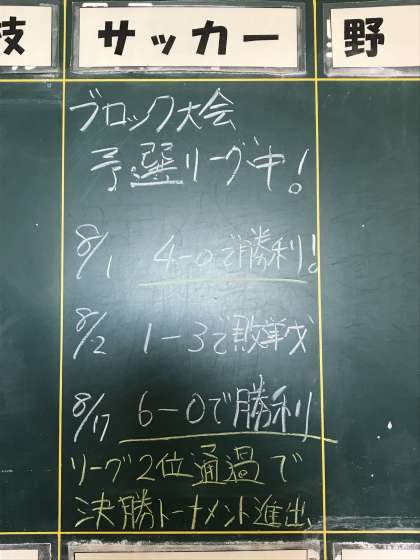 技
サッカー
野
ブロック大会
予選リーグ中!
8/1 4-0で勝利!
8/2 1-3で敗戦
8/17 6-0で勝利
リーグ2位通過で
決勝トーナメント進出、